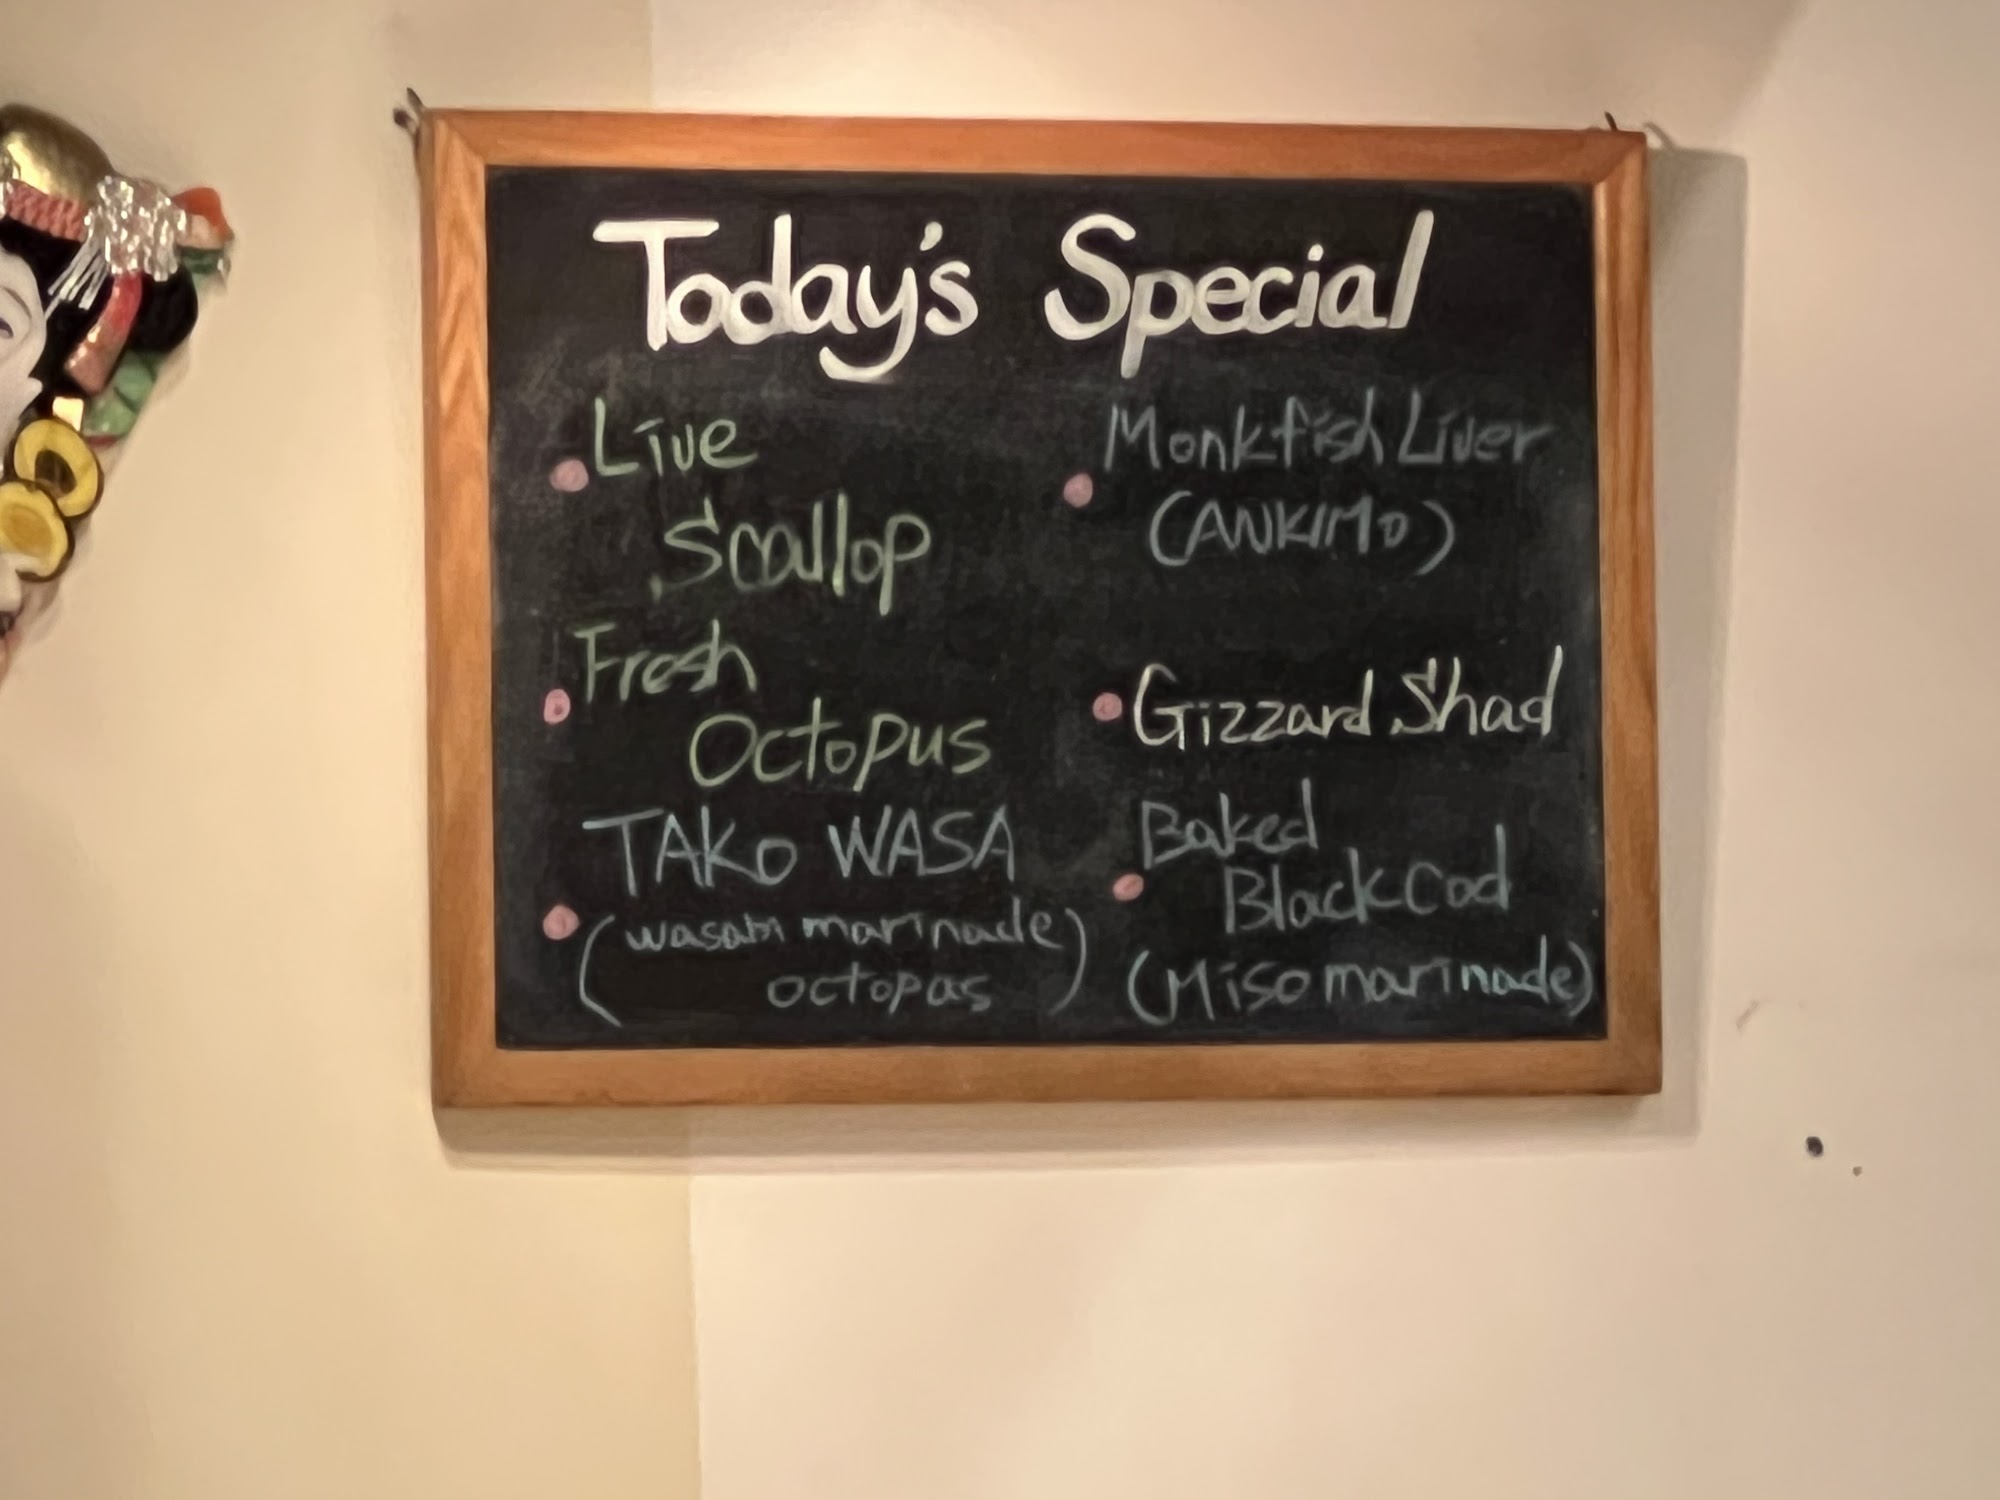 Today's Special
Live
Scallop
Fresh
Octopus
TAKO WASA
(wasabi marinade
octopas)
Monkfish Liver
(ANKIMO)
Gizzard Shad
Baked
Black Cod
(Miso marinade)